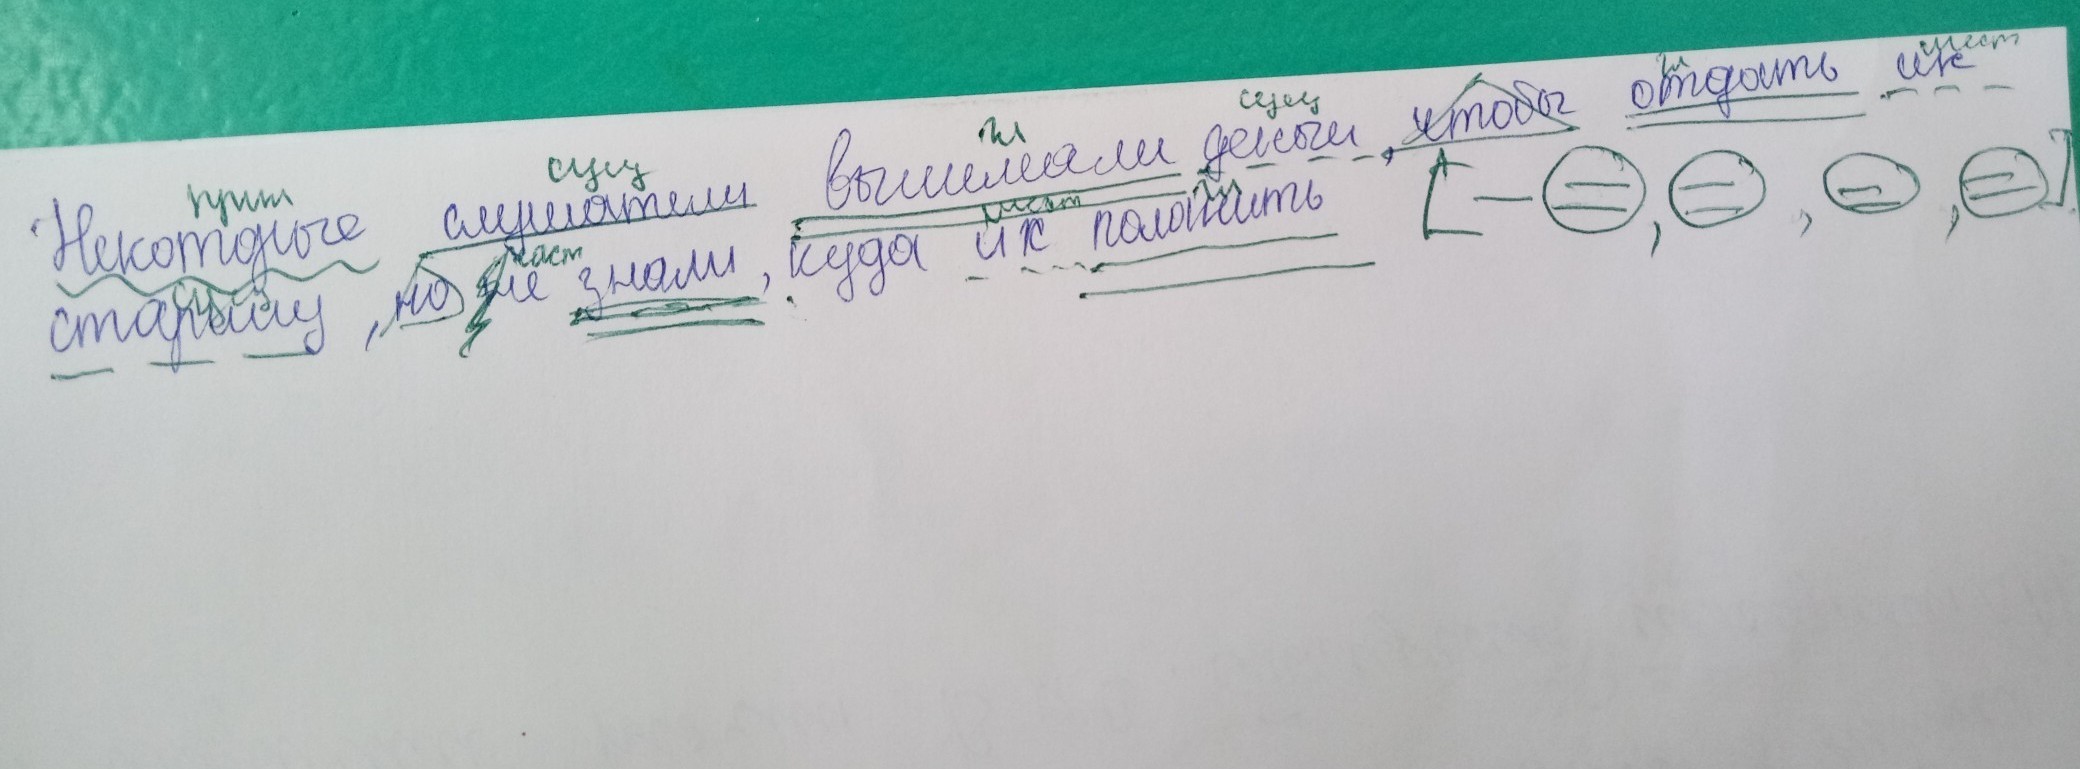 прил сущ гл сущ гл мест
Некоторые слушатели вынимали деньги, чтобы отдать их
сущ част мест гл
старику, но не знали, куда их положить [— =, =, =, =]